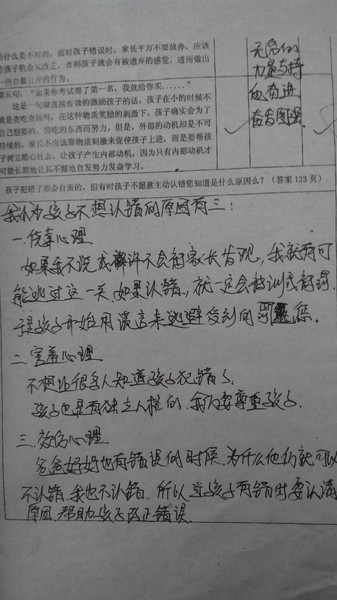 什么是不对的，面对孩子错误时，家长千万不要放弃。应该
给孩子机会来改正，否则孩子就会有被遗弃的感觉，进而做出
一些自暴自弃的行为。
第五句：“如果你考试得了第一名，我就给你买……”
这是一句最直接有效的激励孩子的话，孩子在小的时候不
就是贪吃贪玩吗，在这种物质奖励的刺激下，孩子确实会为了
自己想要的，想吃的东西而努力，但是，外部的动机却是不可
持续的，家长不应该靠物质刺激来促使孩子上进，而是要帮孩
子树立雄心壮志，让孩子产生内部动机，因为只有内部动机才
可能长期地让其不懈地自发努力发奋学习。
无穷的
力量支持
他奋进
奋发图强
孩子犯错了都会自责的，但有时孩子不愿意主动认错您知道是什么原因么？（答案 123 页）
我认为孩子不想认错的原因有三：
一.侥幸心理
如果我不说或许不会被家长发现，我就有可
能逃过这一关，如果认错，就一定会被训或被
是孩子开始用谎言来逃避受到的惩
二.害羞心理
不想让很多人知道孩子犯错了，
孩子也是有独立人格的，我们要尊重孩子。
三.效仿心理
爸爸妈妈也有错误的时候，为什么他们就可以
不认错，我也不认错，所以当孩子有错时要认清
原因，帮助孩子改正错误。